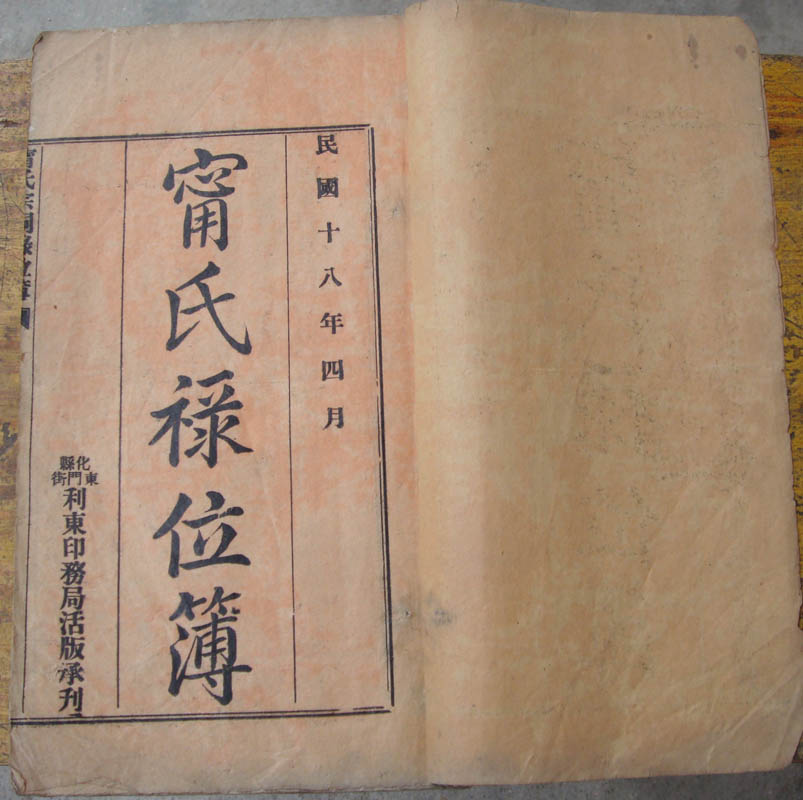 民國十八年四月
甯氏祿位簿
化縣
東門街
利東印務局活版承刊